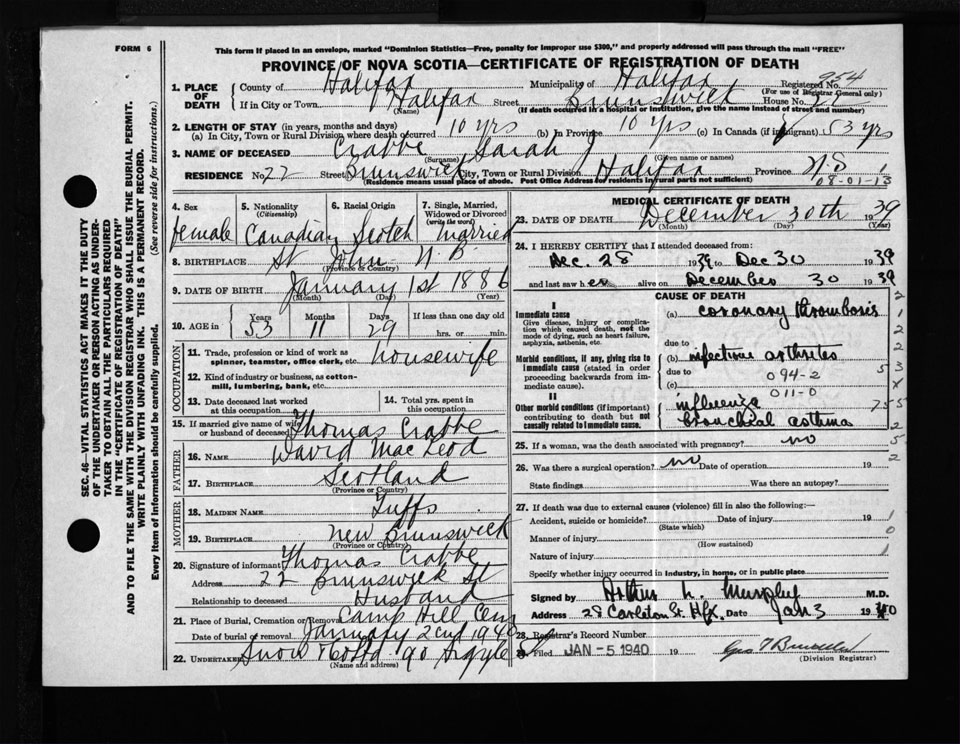 FORM 6
This form if placed in an envelope, marked "Dominion Statistics—Free, penalty for improper use $300," and properly addressed will pass through the mail "FREE"
PROVINCE OF NOVA SCOTIA—CERTIFICATE OF REGISTRATION OF DEATH
SEC. 46—VITAL STATISTICS ACT MAKES IT THE DUTY
OF THE UNDERTAKER OR PERSON ACTING AS UNDER-
TAKER TO OBTAIN ALL THE PARTICULARS REQUIRED
IN THE "CERTIFICATE OF REGISTRATION OF DEATH"
AND TO FILE THE SAME WITH THE DIVISION REGISTRAR WHO SHALL ISSUE THE BURIAL PERMIT.
WRITE PLAINLY WITH UNFADING INK. THIS IS A PERMANENT RECORD.
Every item of Information should be carefully supplied. (See reverse side for instructions.)
1. PLACE OF DEATH
County of Halifax Municipality of Halifax Registered No. 954
(For use of Registrar General only)
If in City or Town Halifax Street Brunswick House No. 22
(Name) (If death occurred in a hospital or institution, give the name instead of street and number)
2. LENGTH OF STAY (in years, months and days)
(a) In City, Town or Rural Division where death occurred 10 yrs (b) In Province 10 yrs (c) In Canada (if immigrant) 53 yrs
3. NAME OF DECEASED Crabbe Sarah J
(Surname) (Given name or names)
RESIDENCE No. 22 Street Brunswick City, Town or Rural Division Halifax Province N.S.
(Residence means usual place of abode. Post Office Address for residents in rural parts not sufficient)
08-01-13
4. Sex female
5. Nationality (Citizenship) Canadian
6. Racial Origin Scotch
7. Single, Married, Widowed or Divorced (write the word) Married
8. BIRTHPLACE St John N.B.
(Province or Country)
9. DATE OF BIRTH January 1st 1886
(Month) (Day) (Year)
10. AGE in Years 53 Months 11 Days 29 If less than one day old hrs. or min.
OCCUPATION
11. Trade, profession or kind of work as spinner, teamster, office clerk, etc. housewife
12. Kind of industry or business, as cotton-mill, lumbering, bank, etc.
13. Date deceased last worked at this occupation
14. Total yrs. spent in this occupation
15. If married give name of wife or husband of deceased Thomas Crabbe
FATHER
16. NAME David MacLeod
17. BIRTHPLACE Scotland
(Province or Country)
MOTHER
18. MAIDEN NAME Tuffs
19. BIRTHPLACE New Brunswick
(Province or Country)
20. Signature of informant Thomas Crabbe
Address 22 Brunswick St
Relationship to deceased Husband
21. Place of Burial, Cremation or Removal Camp Hill Cem
Date of burial or removal January 2nd 1940
22. UNDERTAKER Snow & Co Ltd 90 Argyle
(Name and address)
MEDICAL CERTIFICATE OF DEATH
23. DATE OF DEATH December 30th 1939
(Month) (Day) (Year)
24. I HEREBY CERTIFY that I attended deceased from:
Dec. 28 1939 to Dec 30 1939
and last saw her alive on December 30 1939
CAUSE OF DEATH
I
Immediate cause
Give disease, injury or complication which caused death, not the mode of dying, such as heart failure, asphyxia, asthenia, etc.
(a) coronary thrombosis
due to
Morbid conditions, if any, giving rise to immediate cause (stated in order proceeding backwards from immediate cause).
(b) infectious arthrites
due to
(c)
094-2
011-0
II
Other morbid conditions (if important) contributing to death but not causally related to immediate cause.
influenza
bronchial asthma
25. If a woman, was the death associated with pregnancy? no
26. Was there a surgical operation? no Date of operation 19
State findings Was there an autopsy?
27. If death was due to external causes (violence) fill in also the following:—
Accident, suicide or homicide? Date of injury 19
(State which)
Manner of injury
(How sustained)
Nature of injury
Specify whether injury occurred in industry, in home, or in public place
Signed by Arthur L. Murphy M.D.
Address 28 Carleton St. Hfx. Date Jan 3 1940
28. Registrar's Record Number
Filed JAN -5 1940 19
(Division Registrar)